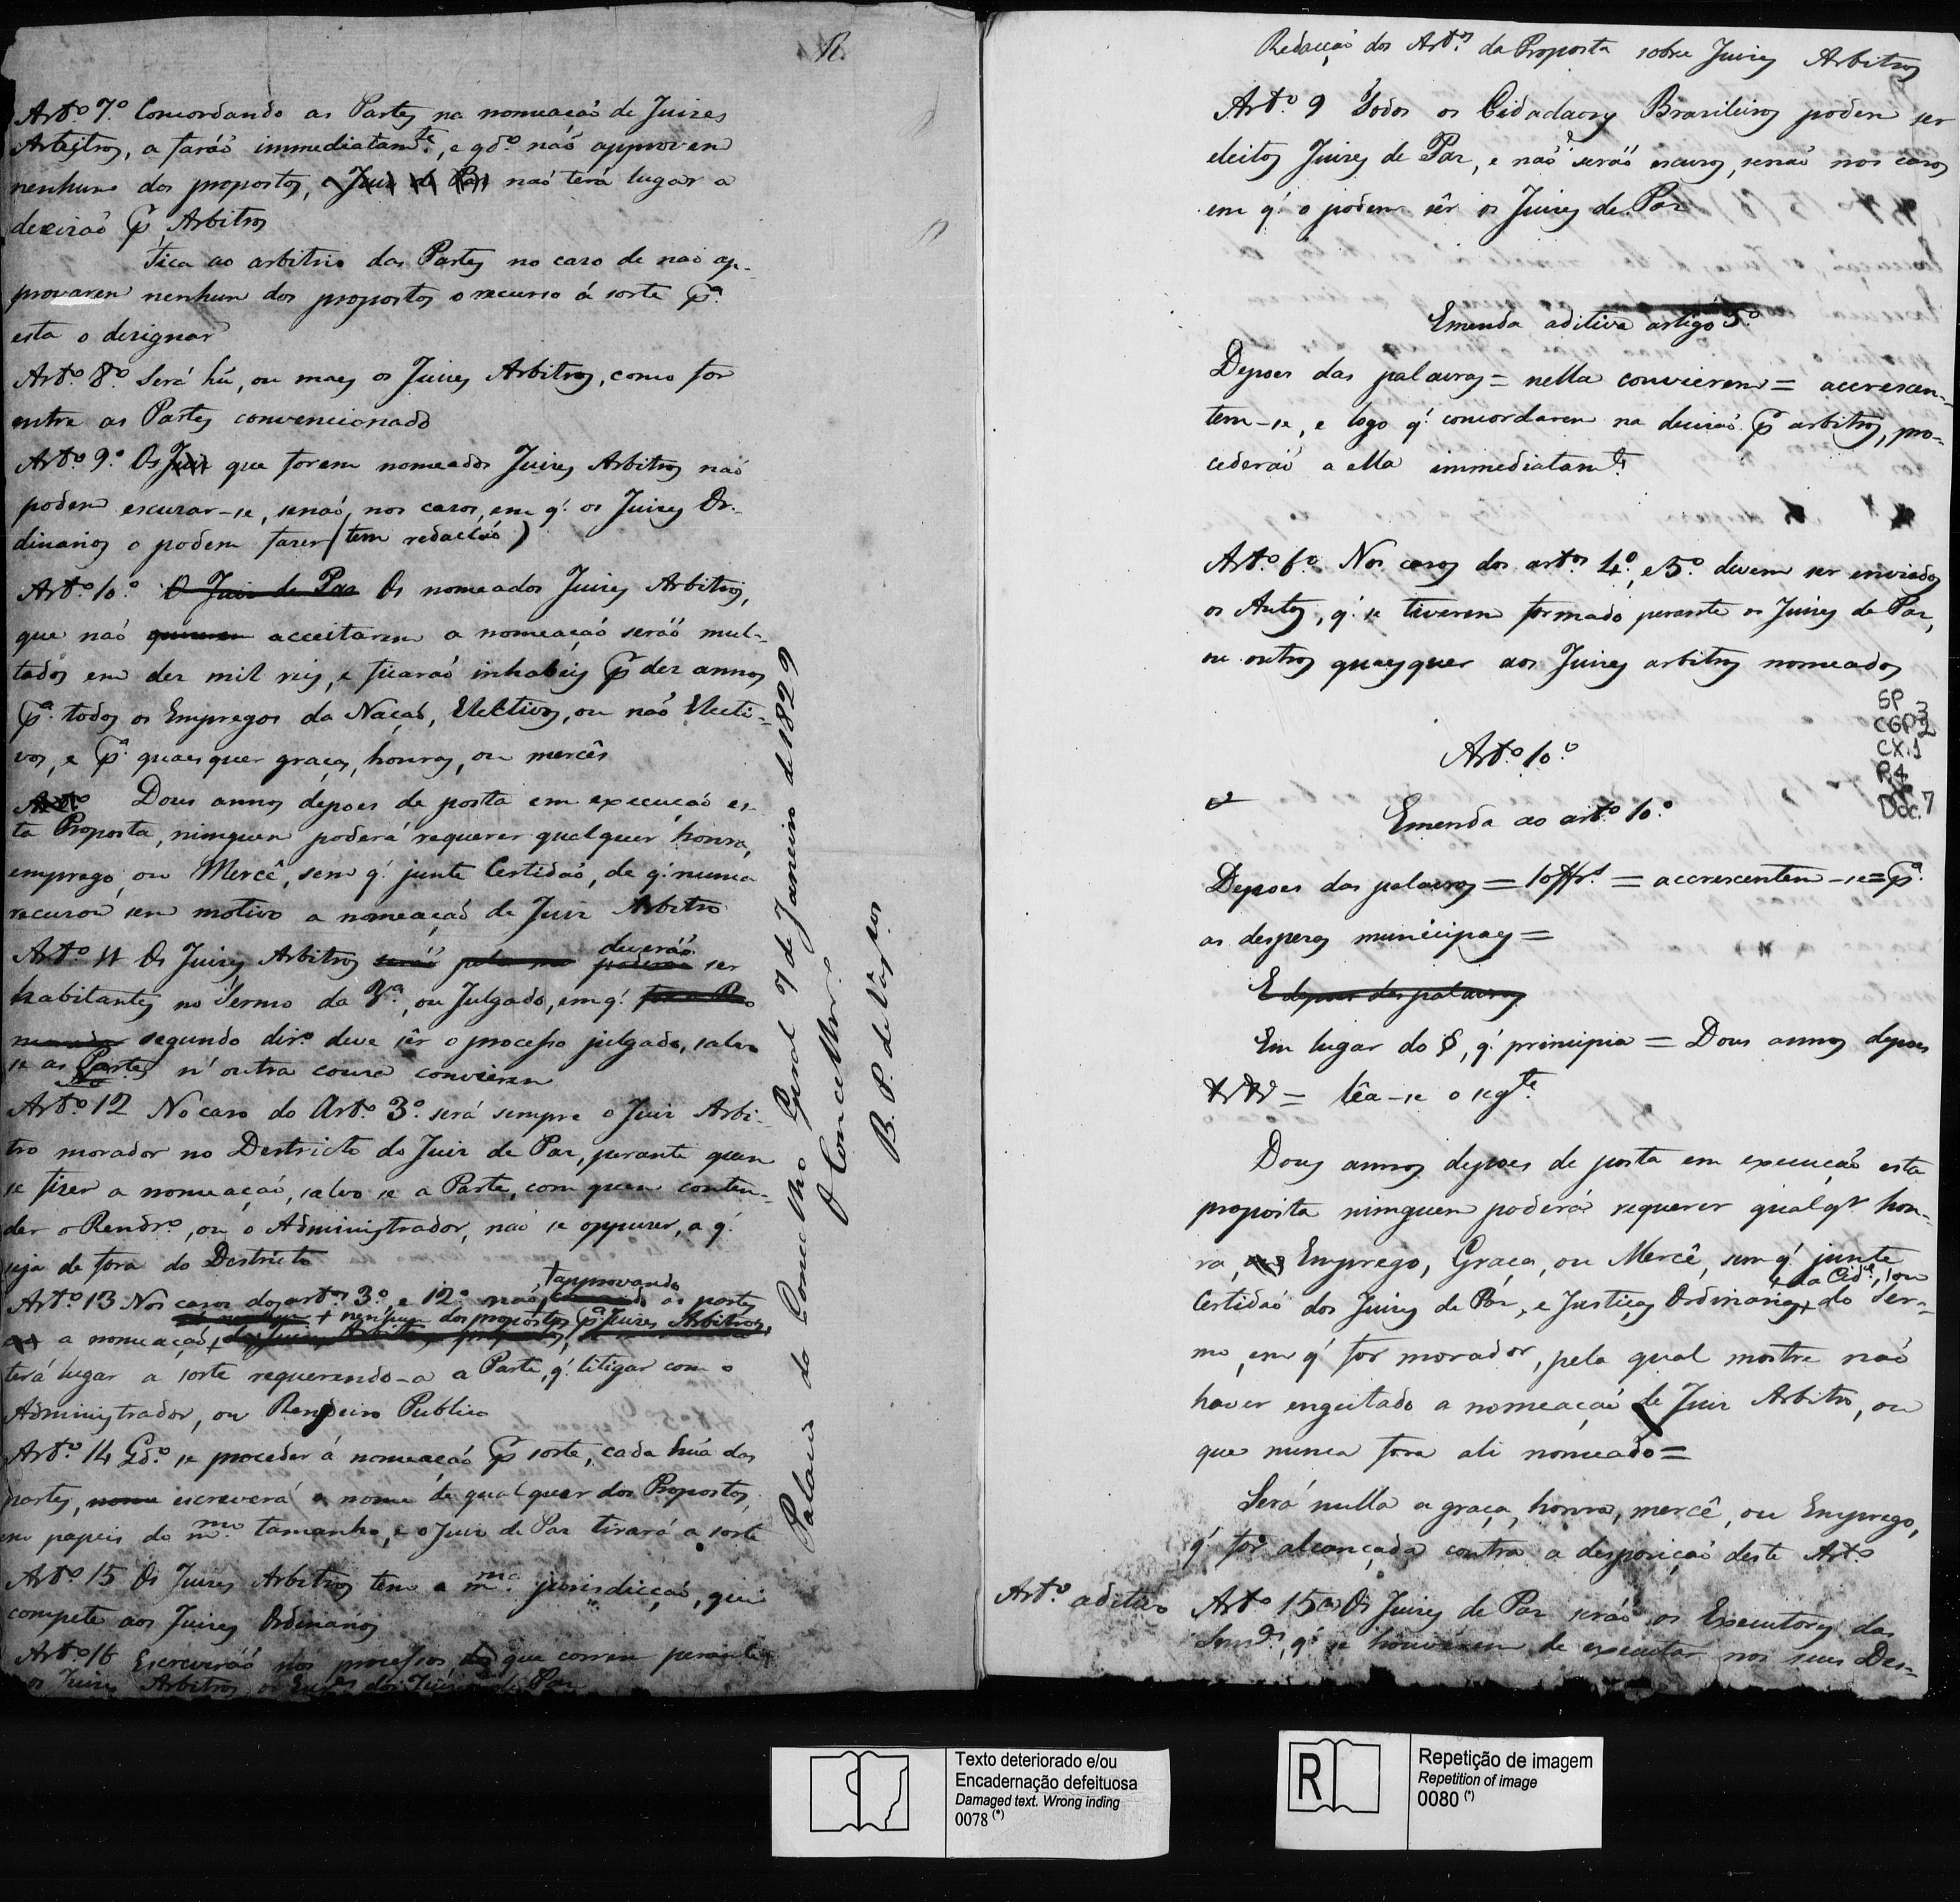 R.
Art.º 7.º Concordando as Partes na nomeação de Juizes
Arbitros, a farão immediatam.te, e qd.º não approvem
nenhum dos propostos, o Juiz de Paz não terá lugar a
dezizão p Arbitros
Fica ao arbitrio das Partes no caso de não ap-
provarem nenhum dos propostos o recurso á sorte p.ª
esta o dezignar
Art.º 8.º Será hũ, ou mais os Juizes Arbitros, como for
entre as Partes convencionado
Art.º 9.º Os Juiz que forem nomeados Juizes Arbitros não
podem escuzar-se, senão, nos cazos, em q' os Juizes Or-
dinarios o podem fazer (tem redacção)
Art.º 10.º O Juiz de Paz Os nomeados Juizes Arbitros,
que não quizerem acceitarem a nomeação serão mul-
tados em dez mil reis, e ficarão inhabeis p dez annos
p.ª todos os Empregos da Nação, Electivos, ou não Electi-
vos, e p.ª quaesquer graças, honras, ou mercês
Art.º Dous annos depoes de posta em execução es-
ta Proposta, ninguem poderá requerer qualquer honra,
emprego, ou Mercê, sem q' junte Certidão, de q' nunca
recuzou sem motivo a nomeação de Juiz Arbitro
deverão
Art.º 11 Os Juizes Arbitros serão pelo me poderão ser
habitantes no Termo da V.ª, ou Julgado, em q'
segundo dir.º deve sêr o processo julgado, salvo
se as Partes n'outra couza convierem
Art.º 12 No cazo do Art.º 3.º será sempre o Juiz Arbi-
tro morador no Destricto do Juiz de Paz, perante quem
se fizer a nomeação, salvo se a Parte, com quem conten-
der o Rendr.º, ou o Administrador, não se oppuzer, a q'
seja de fora do Destricto
approvando
Art.º 13 Nos cazos dos art.os 3.º e 12.º não as partes
+ nenhum dos propostos p.ª Juizes Arbitros,
a nomeação, dos Juizes Arbitros propostos,
terá lugar a sorte requerendo-a a Parte, q' litigar com o
Administrador, ou Rendeiro Publico
Art.º 14 Qd.º se proceder á nomeação p sorte, cada hũa das
partes, nome escreverá o nome de qualquer dos Propostos
em papeis do m.mo tamanho, e o Juiz de Paz tirará a sorte
Art.º 15 Os Juizes Arbitros tem a m.ma jurisdicção, que
compete aos Juizes Ordinarios
Art.º 16 Escreverão nos processos que correm perante
os Juizes Arbitros os dos Juizes de Paz
Palacio do Concelho Geral 7 de Janeiro de 1829
O Concelhr.º
B. P. de Vas.cos
Redacção dos Art.os da Proposta sobre Juizes Arbitros
Art.º 9 Todos os Cidadaons Brazileiros podem ser
eleitos Juizes de Paz, e não serão escuzos, senão nos cazos
em q' o podem sêr os Juizes de Paz
Emenda aditiva artigo 5.º
Depoes das palavras = nella convierem = accrescen-
tem-se, e logo q' concordarem na decizão p arbitros, pro-
cederão a ella immediatam.te
Art.º 6.º Nos cazos dos art.os 4.º, e 5.º devem ser enviados
os Autos, q' se tiverem formado perante os Juizes de Paz,
ou outros quaesquer aos Juizes arbitros nomeados
SP 3
CGP 2
CX.1
P.4
Doc.7
Art.º 10.º
Emenda ao art.º 10.º
Depoes das palavras = 10$rs = accrescentem-se = p.ª
as despezas municipaes =
E depoes das palavras
Em lugar do §, q' principia = Dous annos depoes
= lêa-se o seg.te
Dous annos depoes de posta em execução esta
proposta ninguem poderá requerer qualqr hon-
ra, Emprego, Graça, ou Mercê, sem q' junte
+ da Cid.e, ou
Certidão dos Juizes de Paz, e Justiças Ordinarias, + do Ter-
mo, em q' for morador, pela qual mostre não
haver engeitado a nomeação de Juiz Arbitro, ou
que nunca fora ali nomeado =
Será nulla a graça, honra, mercê, ou Emprego,
q' for alcançada contra a desposição deste Art.º
Art.º aditivo Art.º 15 Os Juizes de Paz serão os Executores das
Sen.as, q' se houverem de executar nos seus Des-
Texto deteriorado e/ou
Encadernação defeituosa
Damaged text. Wrong inding
0078 (*)
R
Repetição de imagem
Repetition of image
0080 (*)